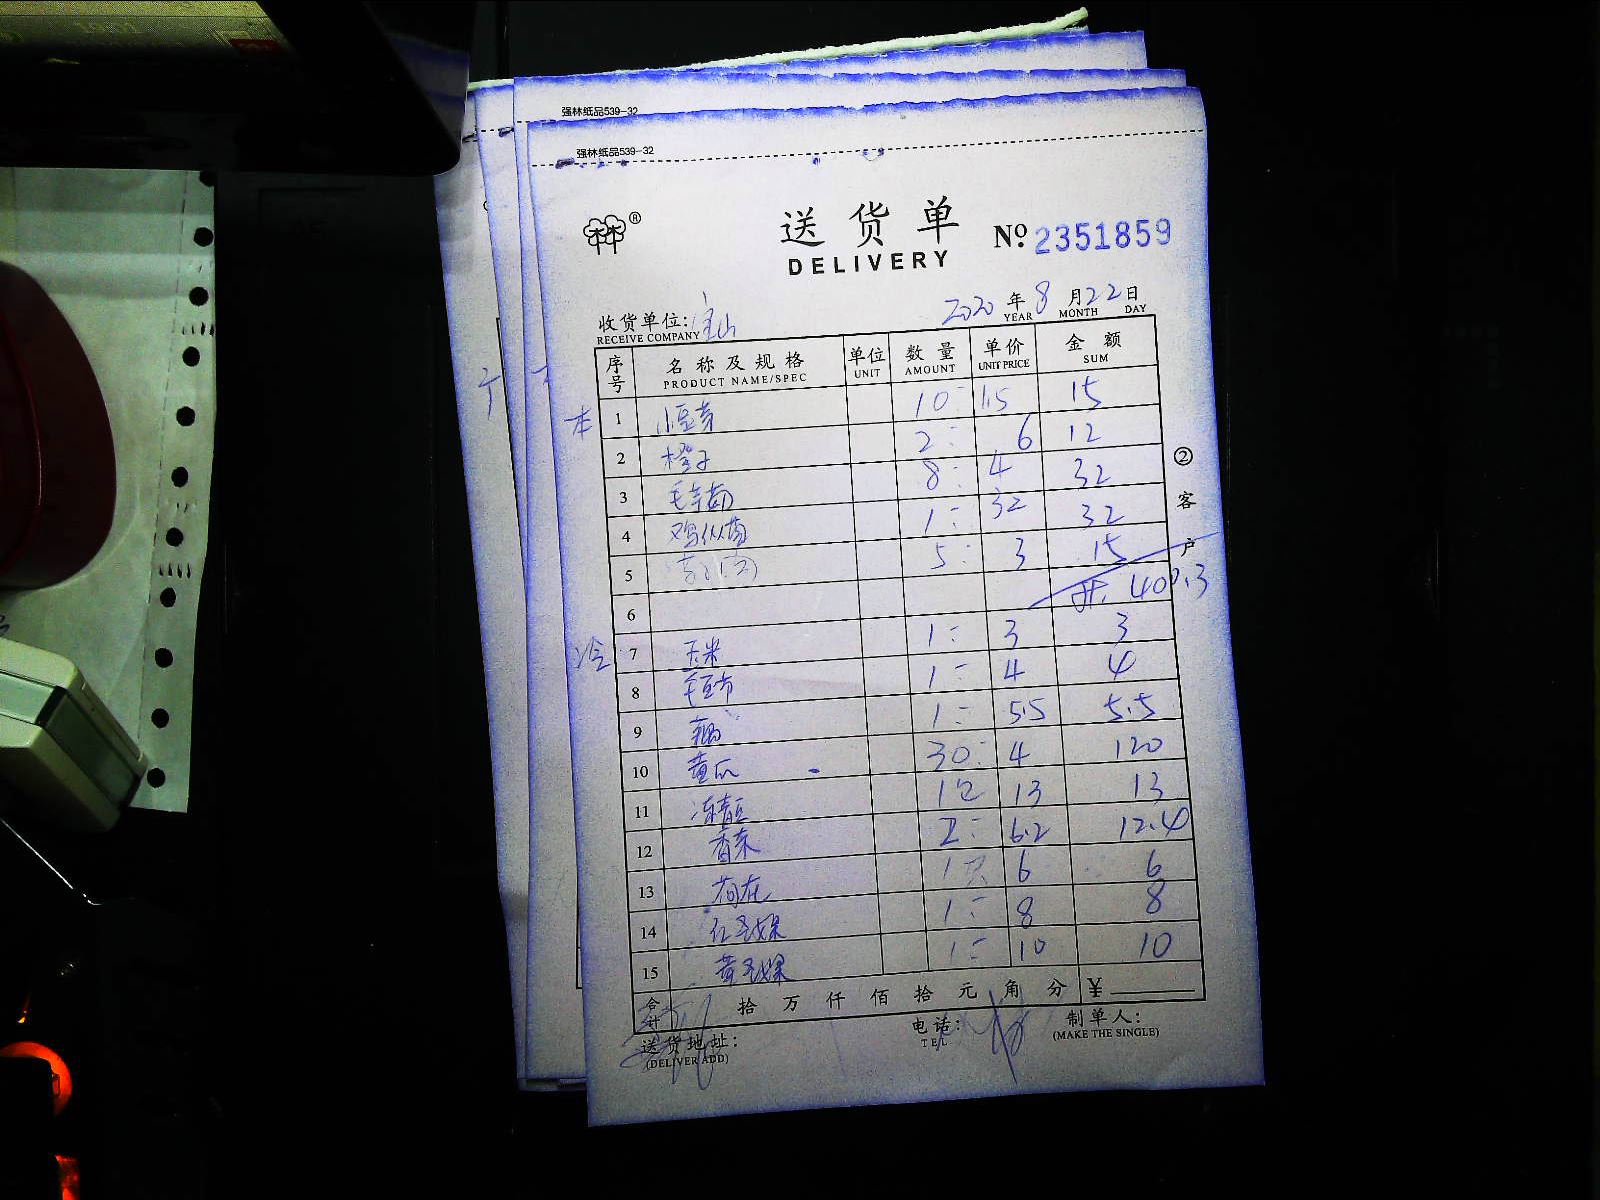 强林纸品539-32
强林纸品539-32
林 ® 送货单 № 2351859
DELIVERY
2020 年 8 月 22 日
YEAR MONTH DAY
收货单位: 宝山
RECEIVE COMPANY
序号 名称及规格 单位 数量 单价 金额
PRODUCT NAME/SPEC UNIT AMOUNT UNIT PRICE SUM
本 1 小豆芽 10 1.5 15
2 橙子 2 6 12
3 毛羊菌 8 4 32
4 鸡枞菌 1 32 32
5 5 3 15
6 计: 409.3
冷 7 玉米 1 3 3
8 毛豆节 1 4 4
9 藕 1 5.5 5.5
10 黄瓜 30 4 120
11 冻青豆 1包 13 13
12 香菜 2 6.2 12.4
13 1只 6 6
14 红圣女果 1 8 8
15 黄圣女果 1 10 10
合计 拾 万 仟 佰 拾 元 角 分 ¥
送货地址: 电话: 制单人:
(DELIVER ADD) TEL (MAKE THE SINGLE)
②客户